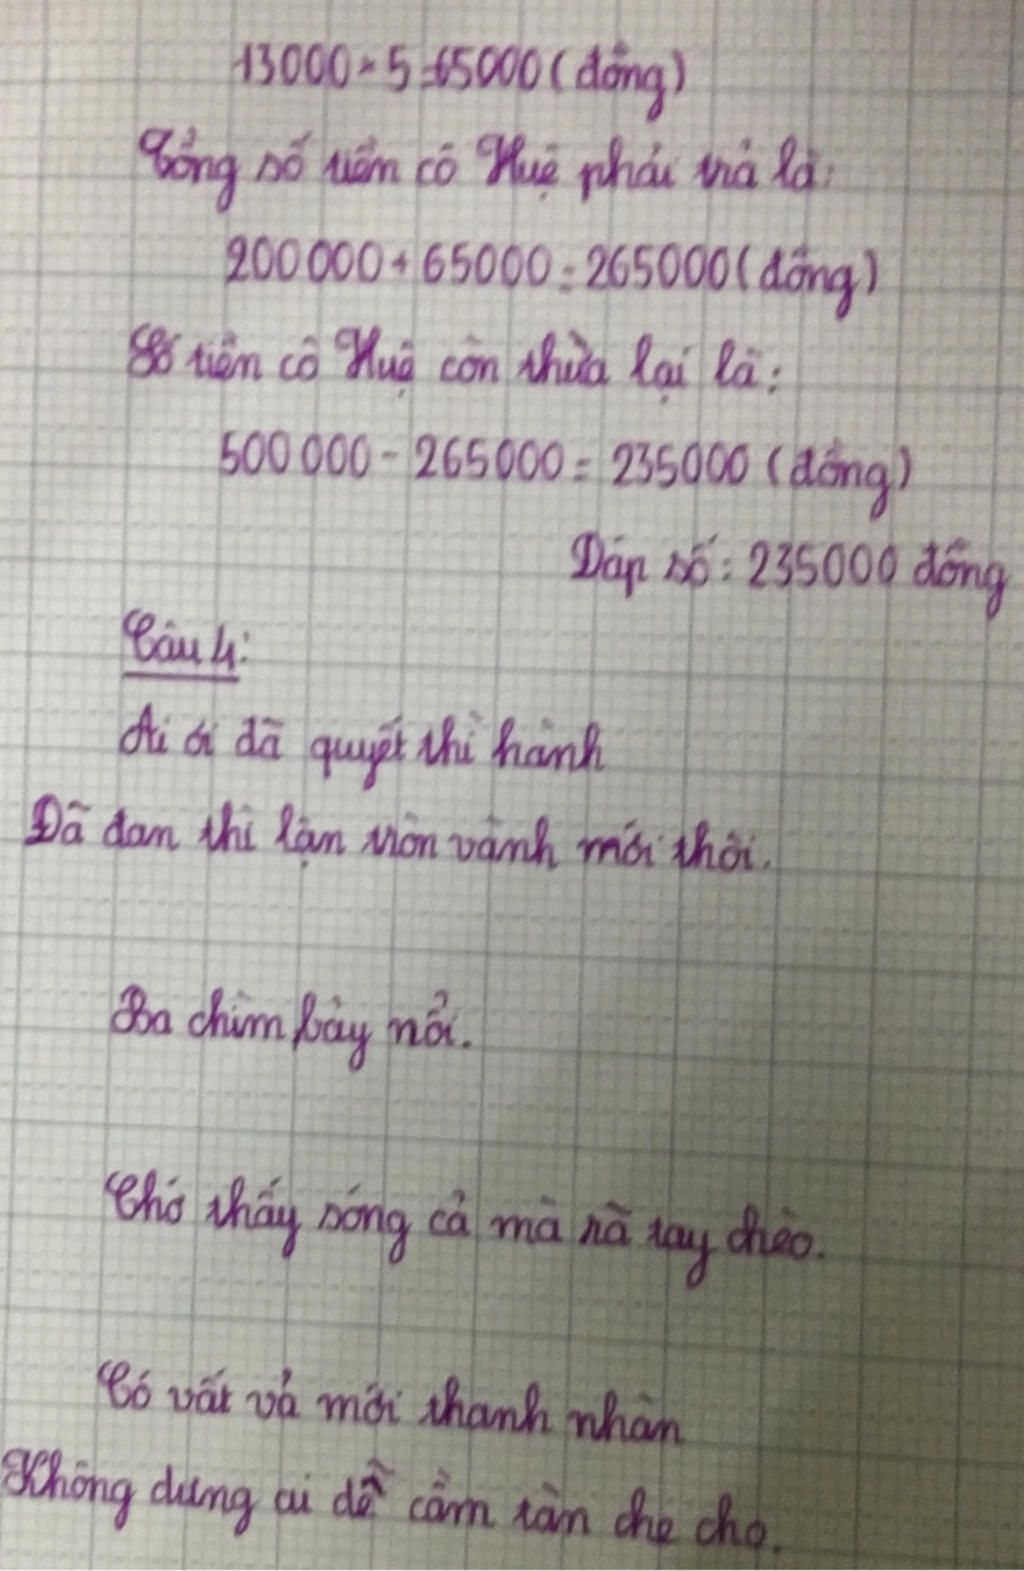 13000 × 5 = 65000 (đồng)
Tổng số tiền cô Huệ phải trả là:
200 000 + 65000 = 265000 (đồng)
Số tiền cô Huệ còn thừa lại là:
500 000 - 265000 = 235000 (đồng)
Đáp số: 235000 đồng
Câu 4:
Ai ơi đã quyết thì hành
Đã đan thì lận tròn vành mới thôi.
Ba chìm bảy nổi.
Chớ thấy sóng cả mà rã tay chèo.
Có vất vả mới thanh nhàn
Không dưng ai dễ cầm tàn che cho.